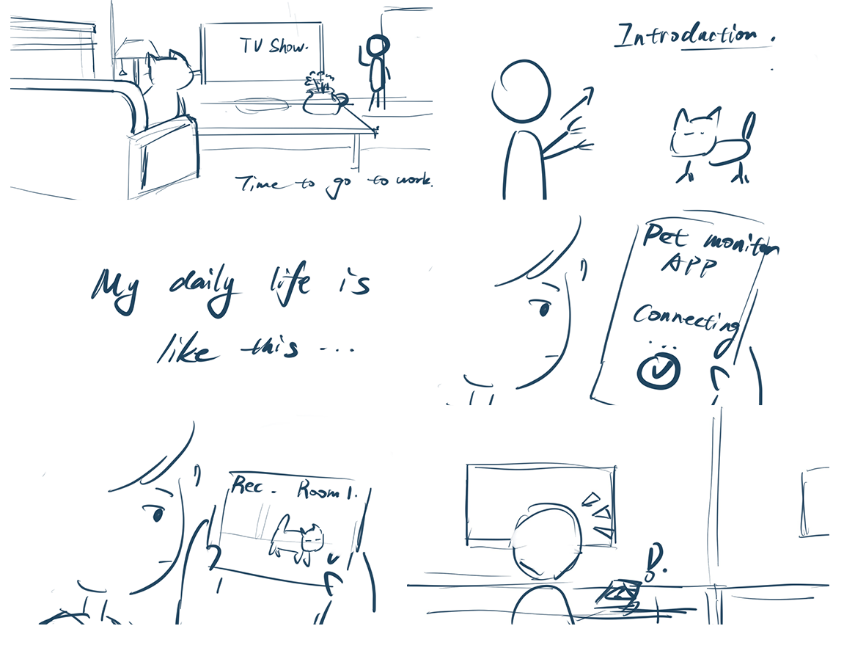 TV Show.
Time to go to work.
Introduction.
My daily life is
like this ...
Pet monitor
APP
Connecting
...
Rec. Room 1.